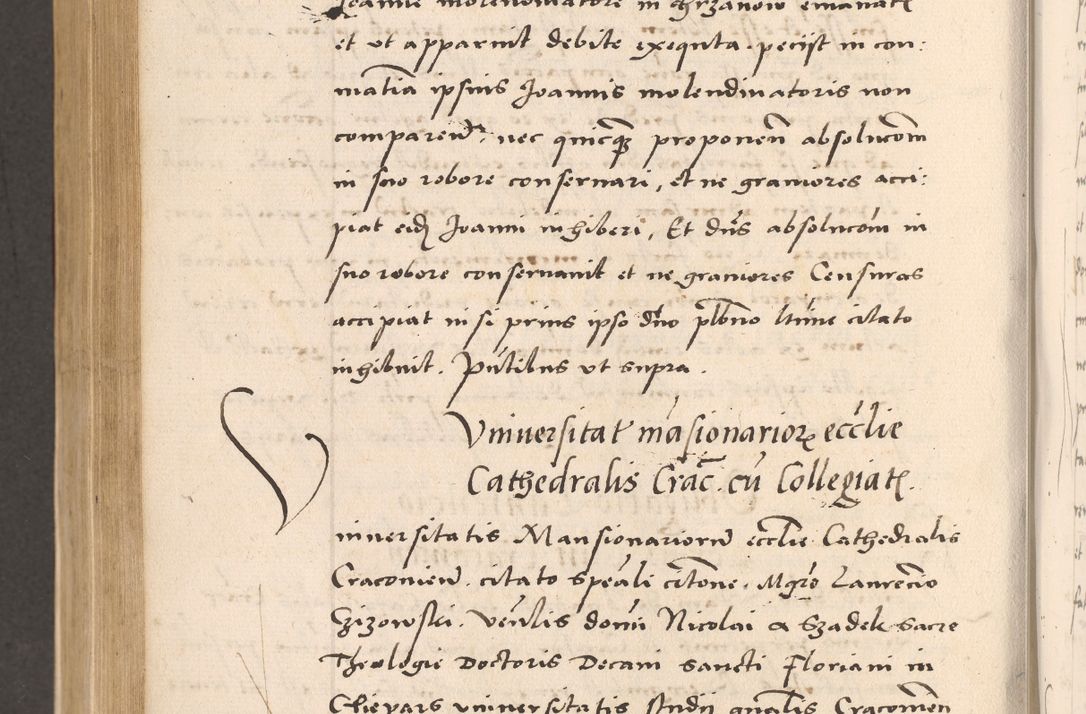 Joanne molendinatore in Chrzanow emanatꝭ
et ut apparuit debite exequuta. peciit in con:
matia ipsius Joannis molendinatoris non
comparenᵗⁱˢ nec quicqꝫ proponeñ absolucom̃
in suo robore conservari, et ne graviores acci:
piat eidꝫ Joanni inhiberi, Et dñs absolucom̃ in
suo robore conservavit et ne graviores Censuras
accipiat nisi prius ipso dño plbno ltime citato
inhibuit. Pñtibus ut supra.
Universitatꝭ mãsionarioꝝ ecclie
Cathedralis Crac. cũ Collegiatꝭ.
Universitatis Mansionariorũ ecclie Cathedralis
Cracovieñ. citato speali citone. Mgro Laurencio
Venlis domi Nicolai a Szadek sacre
Theologie Doctoris Decani sancti Floriani in
Clepars universitatis studii gñalis Cracovieñ